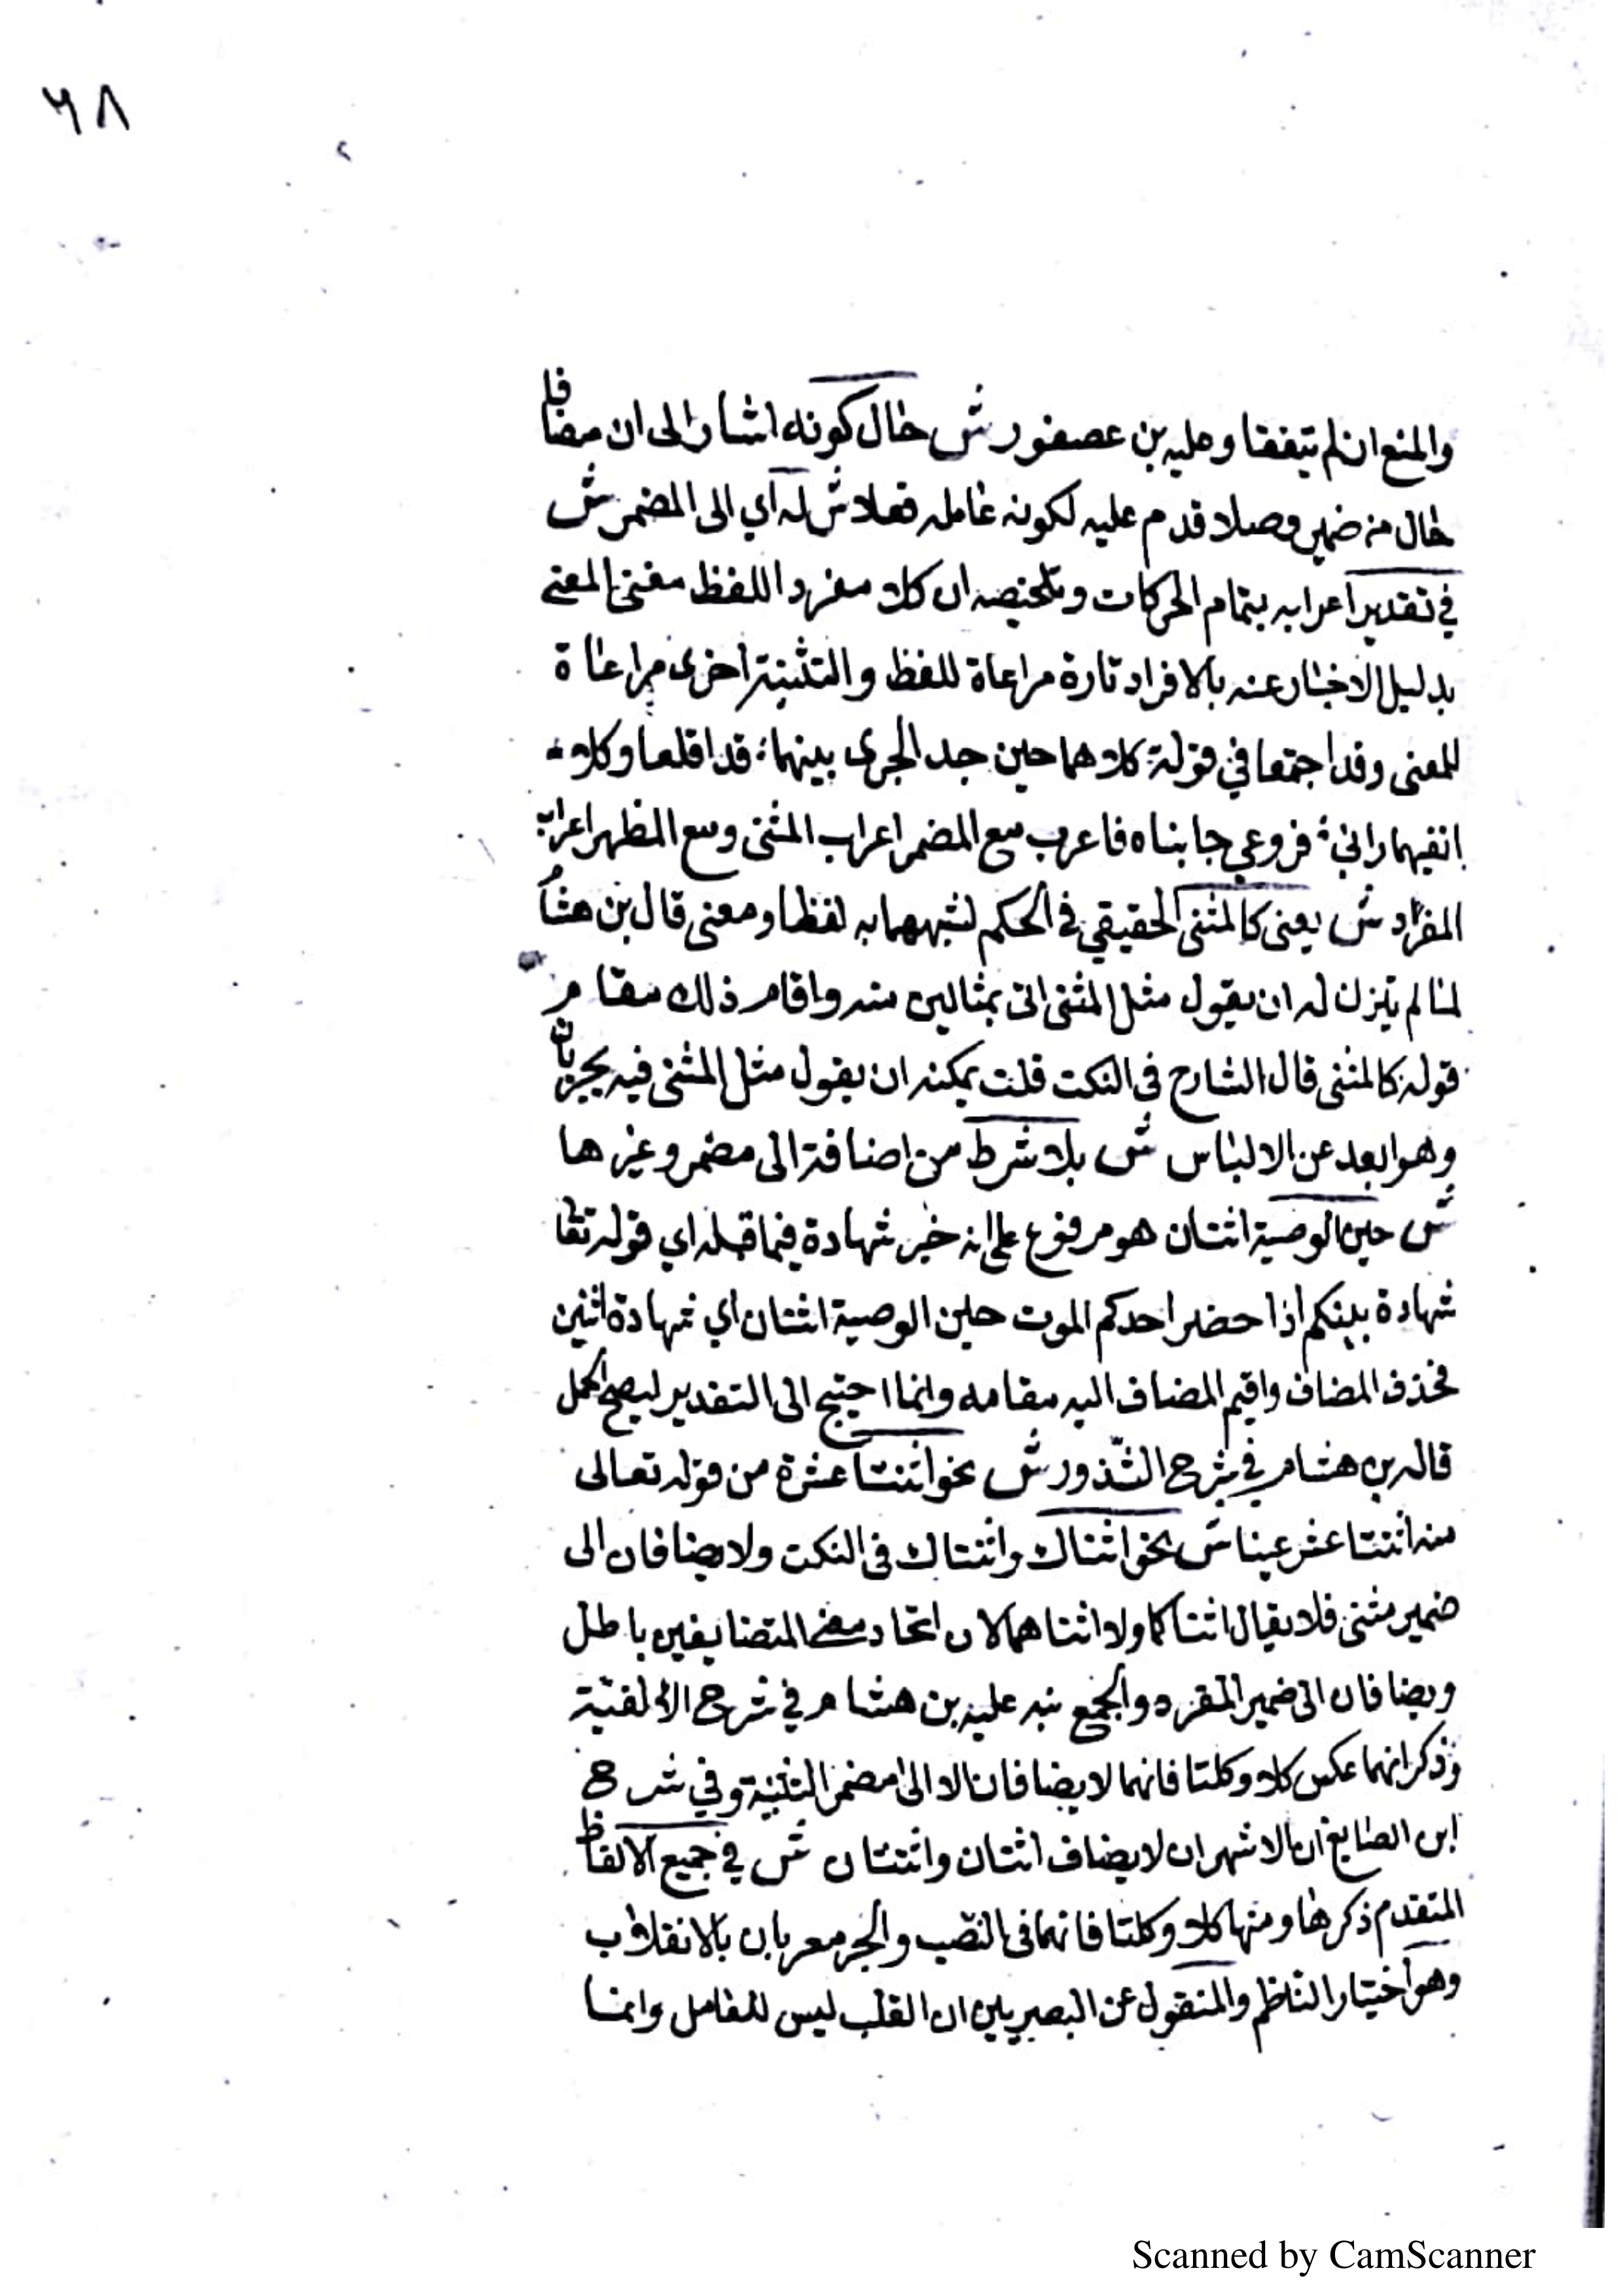 ٦٨
والمنع ان لم يتفقا وعليه بن عصفور ش حال كونه اشار الى ان مضافا
حال من ضمير وصلا قدم عليه لكونه عامله فعلا ش له اي الى المضمر ش
في تقدير اعرابه بتمام الحركات وتلخيصه ان كلا مفرد اللفظ مثنى المعنى
بدليل الاخبار عنه بالافراد تارة مراعاة للفظ والتثنية اخرى مراعاة
للمعنى وقد اجتمعا في قوله كلاهما حين جد الجرى بينهما قد اقلعا وكلا
انفيهما رابي فروعي جانباه فاعرب مع المضمر اعراب المثنى ومع المظهر اعراب
المفرد ش يعنى كالمثنى الحقيقي في الحكم لشبههما به لفظا ومعنى قال بن هشام
لما لم يتزن له ان يقول مثل المثنى اتى بمثالين منه واقام ذلك مقام
قوله كالمثنى قال الشارح في النكت قلت يمكنه ان يقول مثل المثنى فيه يجريان
وهو ابعد عن الالباس ش بلا شرط من اضافة الى مضمر وغيرها
ش حين الوصية اثنان هو مرفوع على انه خبر شهادة فيما قبله اي قوله تعا
شهادة بينكم اذا حضر احدكم الموت حين الوصية اثنان اي شهادة اثنين
فحذف المضاف واقيم المضاف اليه مقامه وانما احتيج الى التقدير ليصح الحمل
قاله بن هشام في شرح الشذور ش نحو اثنتا عشرة من قوله تعالى
منه اثنتا عشر عينا ش نحو اثناك واثنتاك في النكت ولا يضافان الى
ضمير مثنى فلا يقال اثناكما ولا اثناهما لان اتحاد معنى المتضايفين باطل
ويضافان الى ضمير المفرد والجمع نبه عليه بن هشام في شرح الالفية
وذكر انهما عكس كلا وكلتا فانهما لا يضافان الا الى مضمر التثنية وفي شرح
ابن الصايغ ان الاشهر ان لا يضاف اثنان واثنتان ش في جميع الالفاظ
المتقدم ذكرها ومنها كلا وكلتا فانهما في النصب والجر معربان بالانقلاب
وهو اختيار الناظم والمنقول عن البصريين ان القلب ليس للعامل وانما
Scanned by CamScanner